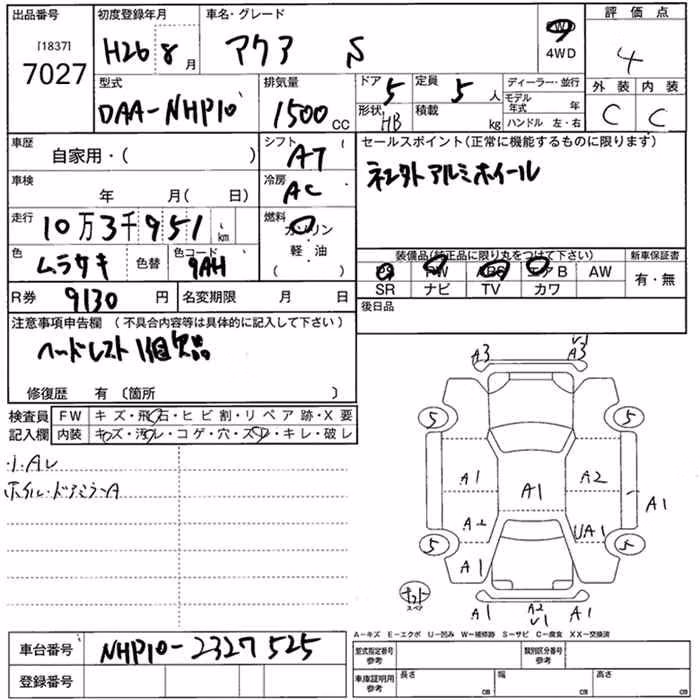 出品番号 初度登録年月 車名・グレード 評価点
[1837]
7027
H26 8月 アクア S 4WD 4
型式 排気量 ドア 定員 ディーラー・並行 外装 内装
DAA-NHP10 1500CC 5 5人 モデル年式 年 C C
形状 HB 積載 kg ハンドル 左・右
車歴 シフト セールスポイント(正常に機能するものに限ります)
自家用・( ) AT ネンタトアルミホイール
車検 冷房
年 月( 日) AC
走行 燃料
10万3千951km ガソリン
軽・油
( )
色 色替 色コード
ムラサキ 9AH
装備品(純正品に限り丸をつけて下さい) 新車保証書
PS PW ABS エアB AW 有・無
SR ナビ TV カワ
R券 9130円 名変期限 月 日 後日品
注意事項申告欄 (不具合内容等は具体的に記入して下さい)
ヘッドレスト1個欠品
修復歴 有 〔箇所 〕
検査員 FW キズ・飛石・ヒビ割・リペア跡・X要
記入欄 内装 キズ・汚レ・コゲ・穴・スレ・キレ・破レ
小A
ホイル・ドアミラーA
A3 A3
5 5
A1 A2
A1 A1
A2 UA1
5 5
A1
スペア
A1 A2 A1
A-キズ E-エクボ U-凹み W-補修跡 S-サビ C-腐食 XX-交換済
車台番号 NHP10-2327525
型式指定番号 参考 類別区分番号 参考
登録番号
車庫証明用 参考 長さ cm 幅 cm 高さ cm